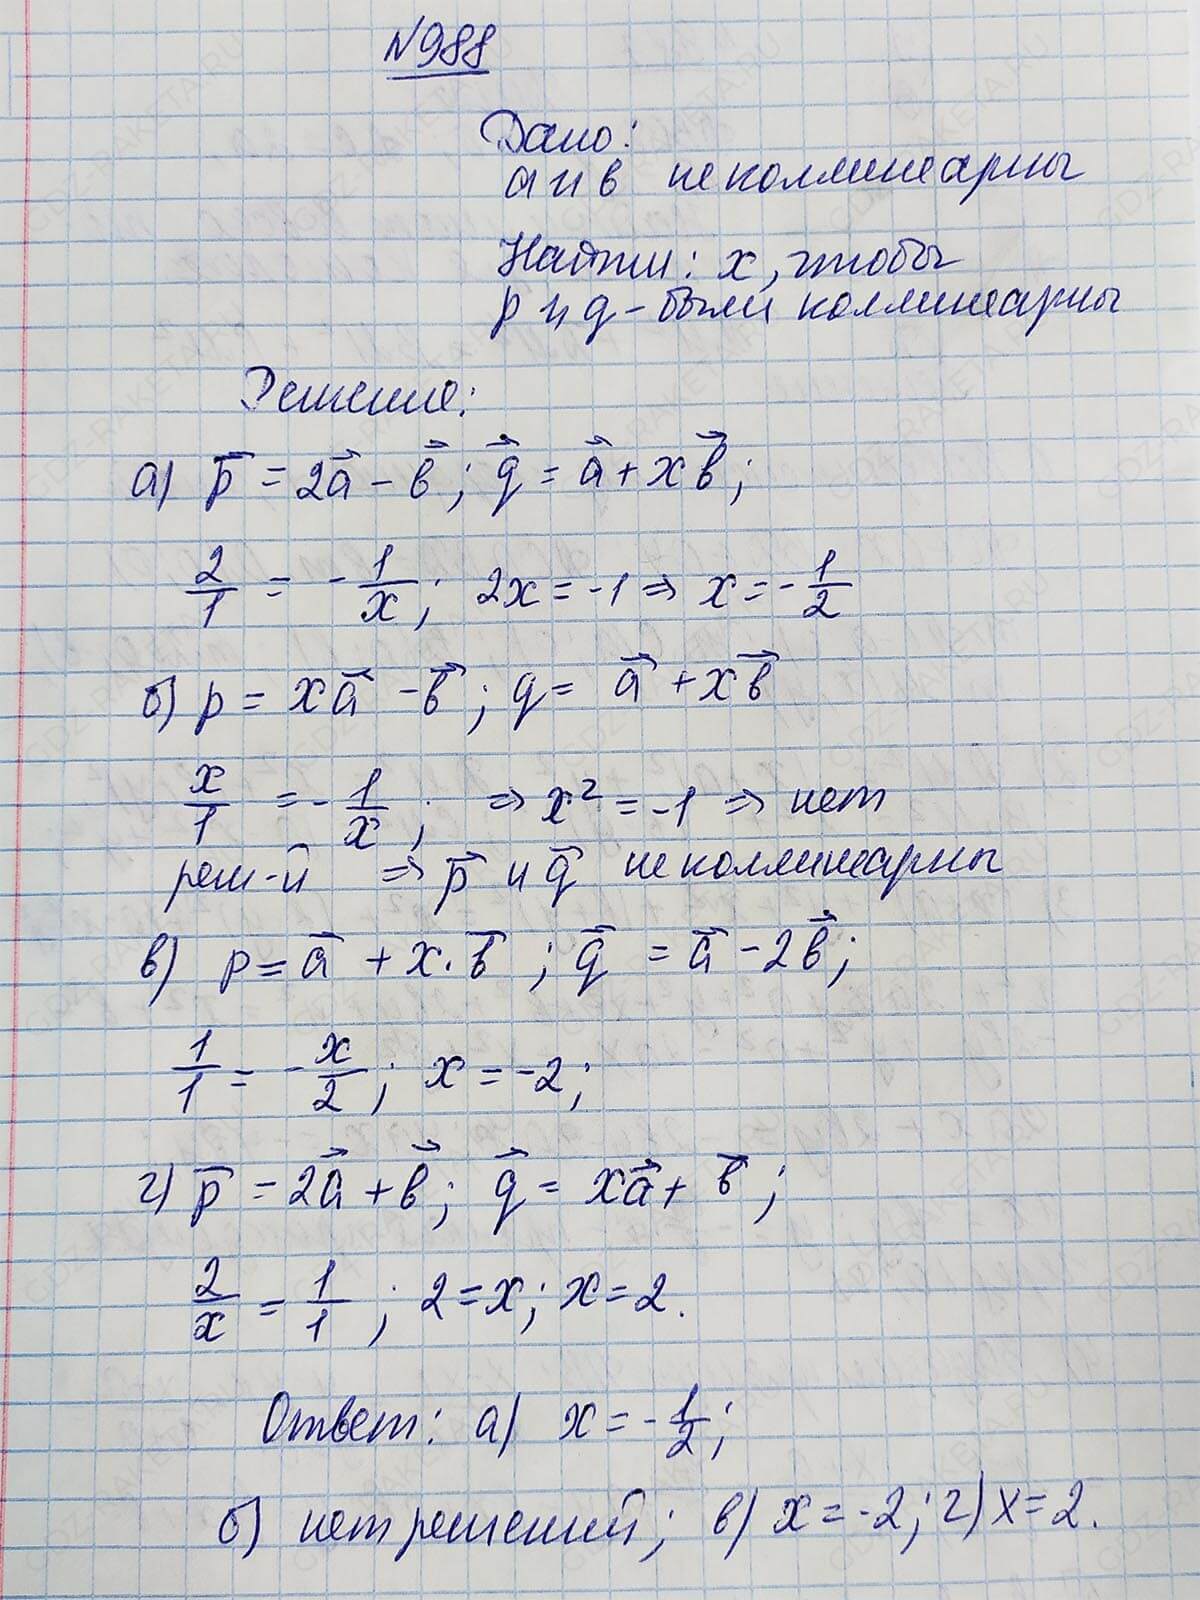 №988
Дано:
а и в неколлинеарны
Найти: x, чтобы
p и q - были коллинеарны
Решение:
а) p⃗ = 2a⃗ - в⃗; q⃗ = a⃗ + xв⃗;
2/1 = -1/x; 2x = -1 ⇒ x = -1/2
б) p = xa⃗ - в⃗; q = a⃗ + xв⃗
x/1 = -1/x; ⇒ x² = -1 ⇒ нет
реш-й ⇒ p⃗ и q⃗ неколлинеарны
в) p = a⃗ + x·в⃗; q⃗ = a⃗ - 2в⃗;
1/1 = -x/2; x = -2;
г) p⃗ = 2a⃗ + в⃗; q⃗ = xa⃗ + в⃗;
2/x = 1/1; 2 = x; x = 2.
Ответ: а) x = -1/2;
б) нет решений; в) x = -2; г) x = 2.